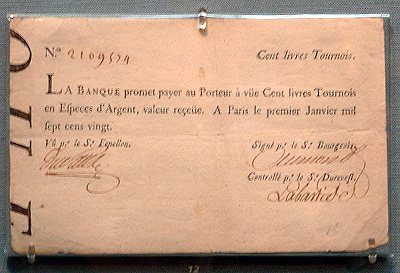 N.º 2109574 Cent livres Tournois.
LA BANQUE promet payer au Porteur à vûe Cent livres Tournois
en Especes d'Argent, valeur reçeüe. A Paris le premier Janvier mil
sept cens vingt.
Vû p.r le S.r Fenellon. Signé p.r le S.r Bourgeois.
Controllé p.r le S.r Durevest.
12